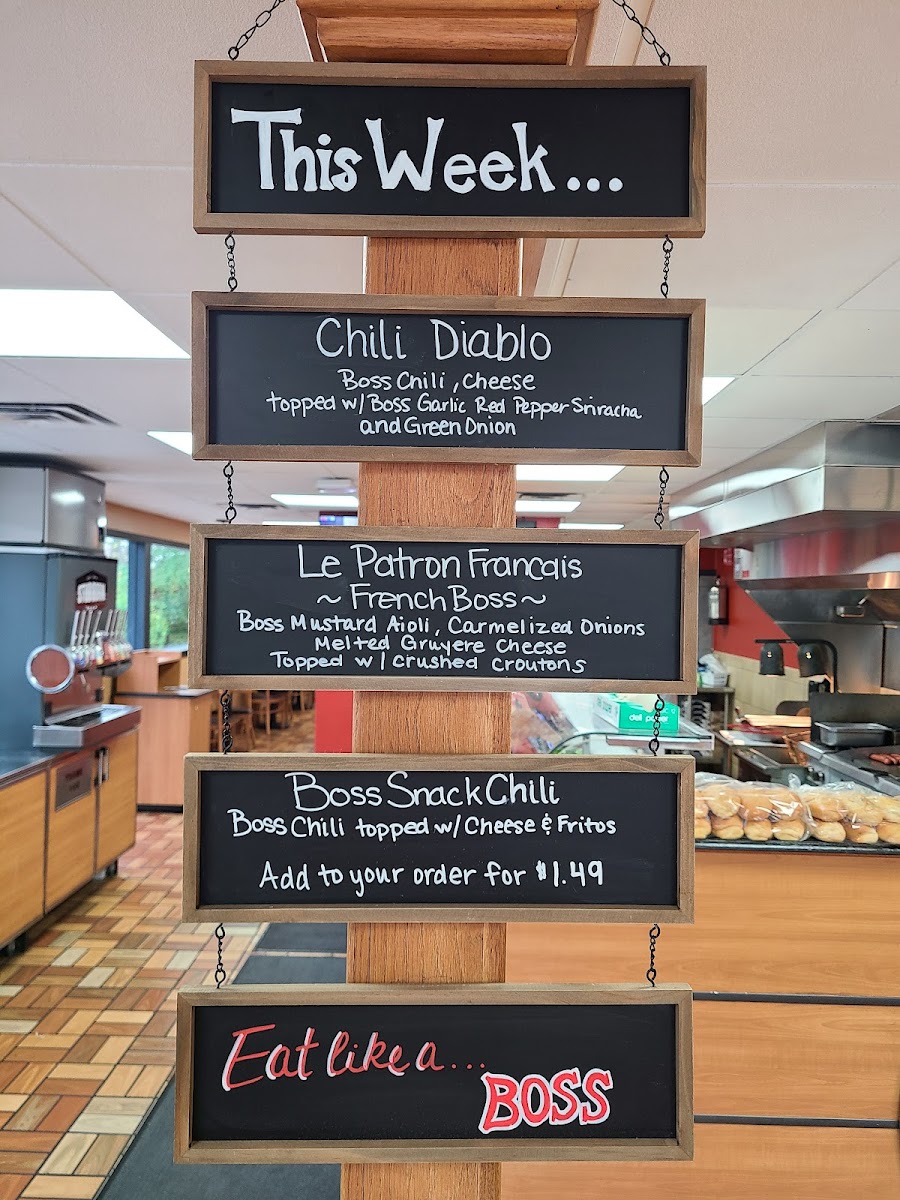 This Week...
Chili Diablo
Boss Chili, Cheese
topped w/ Boss Garlic Red Pepper Sriracha
and Green Onion
Le Patron Francais
~ French Boss ~
Boss Mustard Aioli, Carmelized Onions
Melted Gruyere Cheese
Topped w/ crushed croutons
Boss Snack Chili
Boss Chili topped w/ Cheese & Fritos
Add to your order for $1.49
Eat like a...
BOSS
deli paper